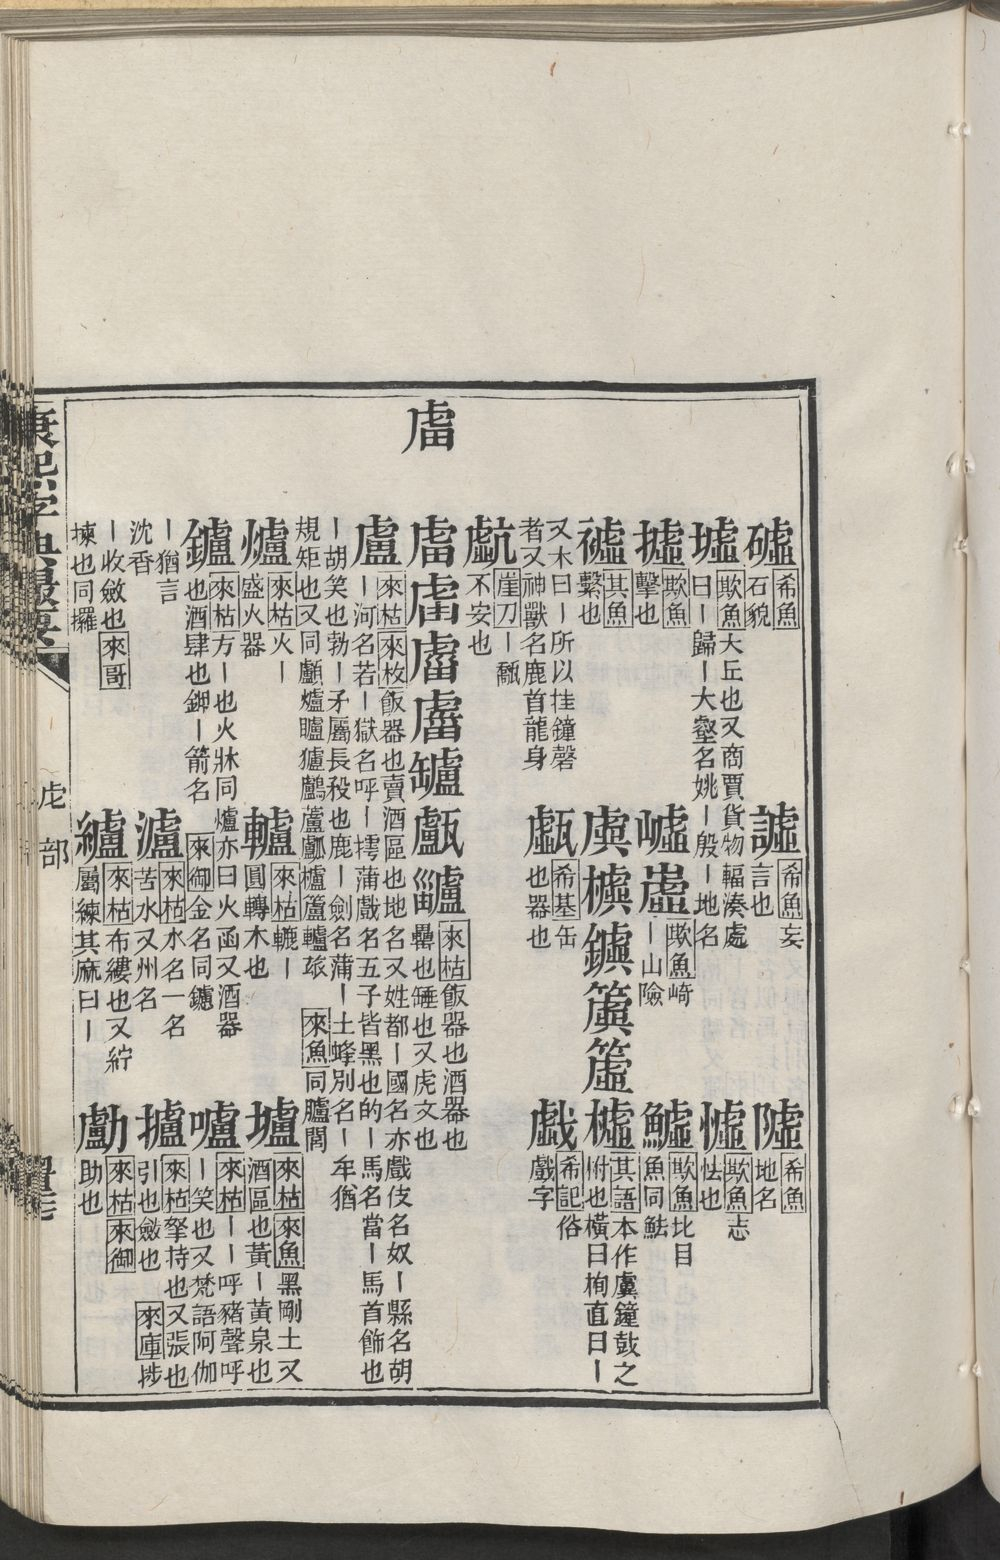 𧆨
礄希魚石貌
譃希魚妄言也
𨼋希魚地名
墟欺魚大丘也又商賈貨物輻湊處
曰丨歸丨大壑名姚丨殷丨地名
㠊欺魚志怯也
㩀欺魚擊也
嶇𡾎欺魚崎丨山險
魖欺魚比目魚同鮭
其魚繫也
虡𣝕鐻簴其語本作虞鐘鼓之柎也橫曰栒直曰丨
又木曰丨所以挂鐘磬
者又神獸名鹿首龍身
希基缶也器也
戲希記俗戲字
崖刀丨䫻不安也
罏甗來枯飯器也酒器也
罍也缶也又虎文也
盧來枯來枚飯器也賣酒區也地名又姓都丨國名亦戲伎名奴丨縣名胡
丨河名若丨獄名呼丨摴蒲戲名五子皆黑也的丨馬名當丨馬首飾也
丨胡笑也勃丨矛屬長殺也鹿丨劍名蒲丨土蜂別名丨牟猶
規矩也又同顱爐矑獹鸕蘆鑪櫨蘆轤玈來魚同臚閭
爐來枯火丨盛火器
轤來枯轆丨圓轉木也
壚來枯來魚黑剛土又酒區也黃丨黃泉也
鑪來枯方丨也火牀同爐亦曰火函又酒器
也酒肆也鉀丨箭名來御金名同鑢
嚧來枯丨丨呼豬聲呼丨笑也又梵語阿伽
丨猶言
沈香
瀘來枯水名一名苦水又州名
攎來枯拏持也又張也引也斂也來庫捗
丨收斂也來哥
揀也同攞
纑來枯布縷也又紵屬練其麻曰丨
勴來枯來御助也
康熙字典撮要
虍部